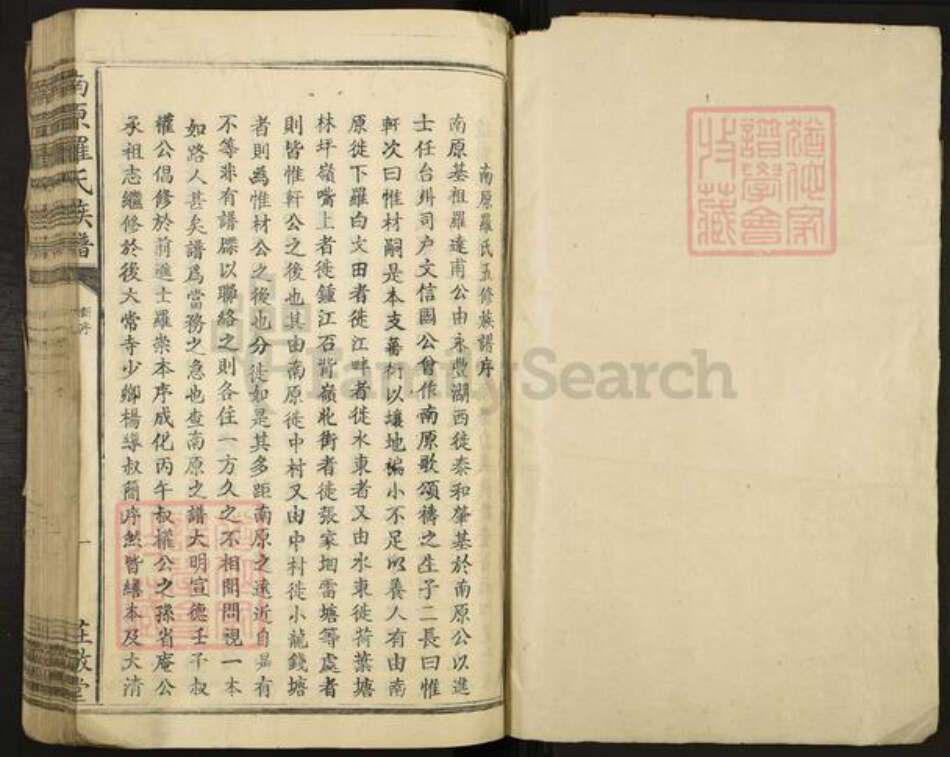 南原羅氏五修族譜序
南原基祖羅達甫公由永豐湖西徙泰和肇基於南原公以進
士任台州司户文信國公曾作南原歌頌禱之生子二長曰惟
軒次曰惟材嗣是本支蕃衍以壤地褊小不足以養人有由南
原徙下羅白文田者徙江畔者徙水東者又由水東徙荷葉塘
林坪嶺嘴上者徙鍾江石背嶺北街者徒張家坳雷塘等處者
則皆惟軒公之後也其由南原徙中村又由中村徙小龍錢塘
者則為惟材公之後也分徙如是其多距南原之遠近自是有
不等非有譜牒以聯絡之則各住一方久之不相聞問視一本
如路人甚矣譜爲當務之急也查南原之譜大明宣德壬子叔
權公倡修於前進士羅崇本序成化丙午叔權公之孫省庵公
承祖志繼修於後大常寺少卿楊導叔簡序然皆繕本及大清
南原羅氏族譜
一
莊敬堂
譜學會
收藏
FamilySearch